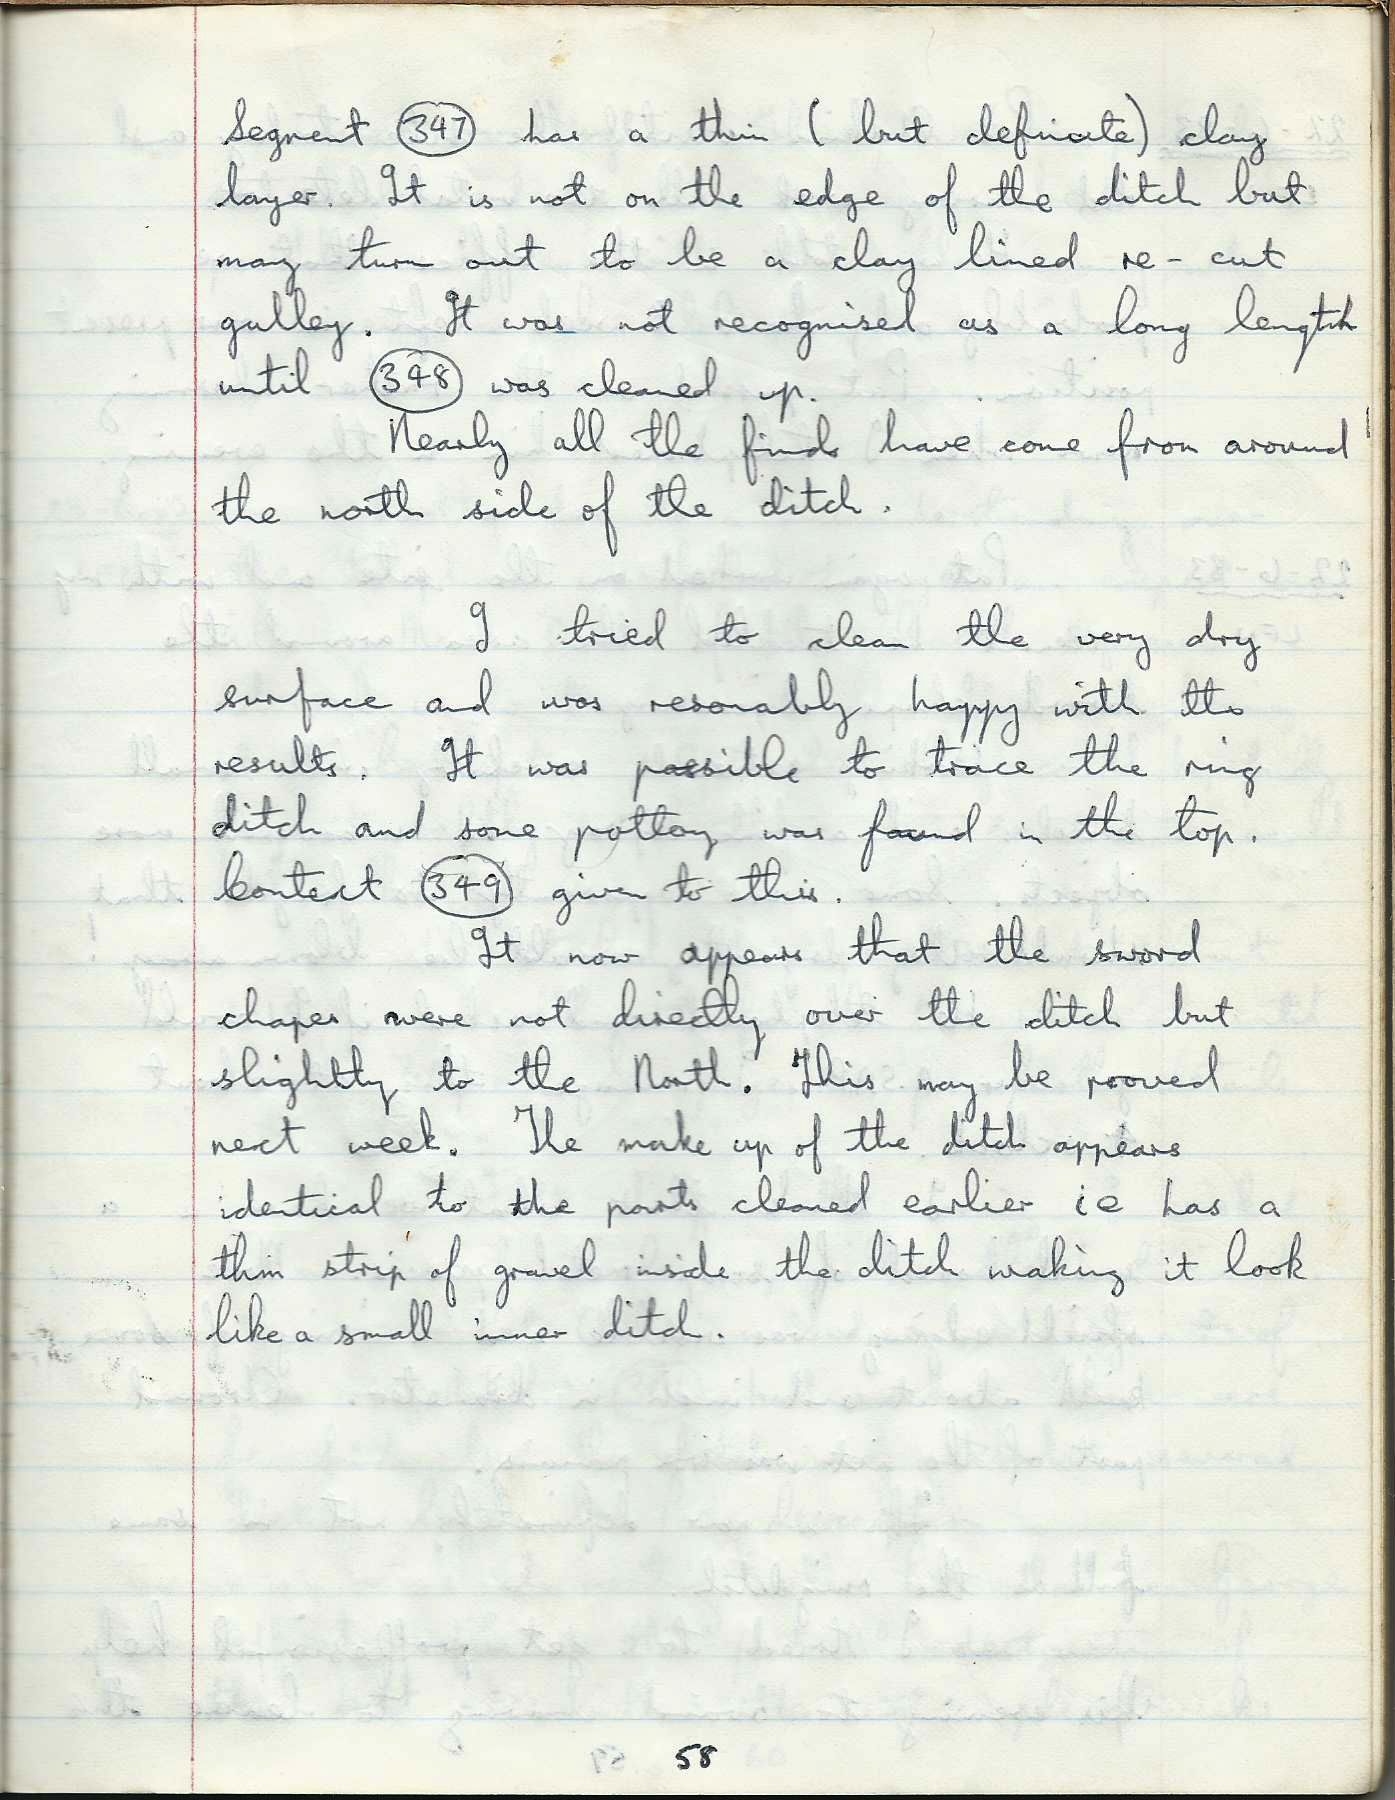 Segment 347 has a thin (but definate) clay
layer. It is not on the edge of the ditch but
may turn out to be a clay lined re-cut
gulley. It was not recognised as a long length
until 348 was cleaned up.
Nearly all the finds have come from around
the north side of the ditch.
I tried to clean the very dry
surface and was resonably happy with the
results. It was possible to trace the ring
ditch and some pottery was found in the top.
Context 349 given to this.
It now appears that the sword
chapes were not directly over the ditch but
slightly to the North. This may be prooved
next week. The make up of the ditch appears
identical to the parts cleaned earlier ie has a
thin strip of gravel inside the ditch making it look
like a small inner ditch.
58